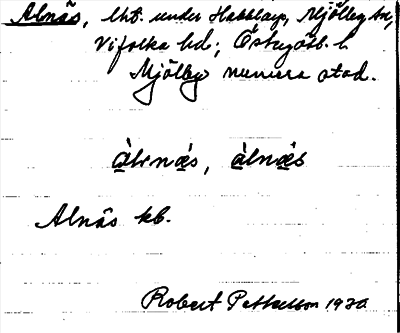 Alnäs, lht. under Hakklarp, Mjölby sn,
Vifolka hd; Östergötl. l.
Mjölby numera stad.
àlnæs, àlnæs
Alnäs kb.
Robert Pettersson 1930